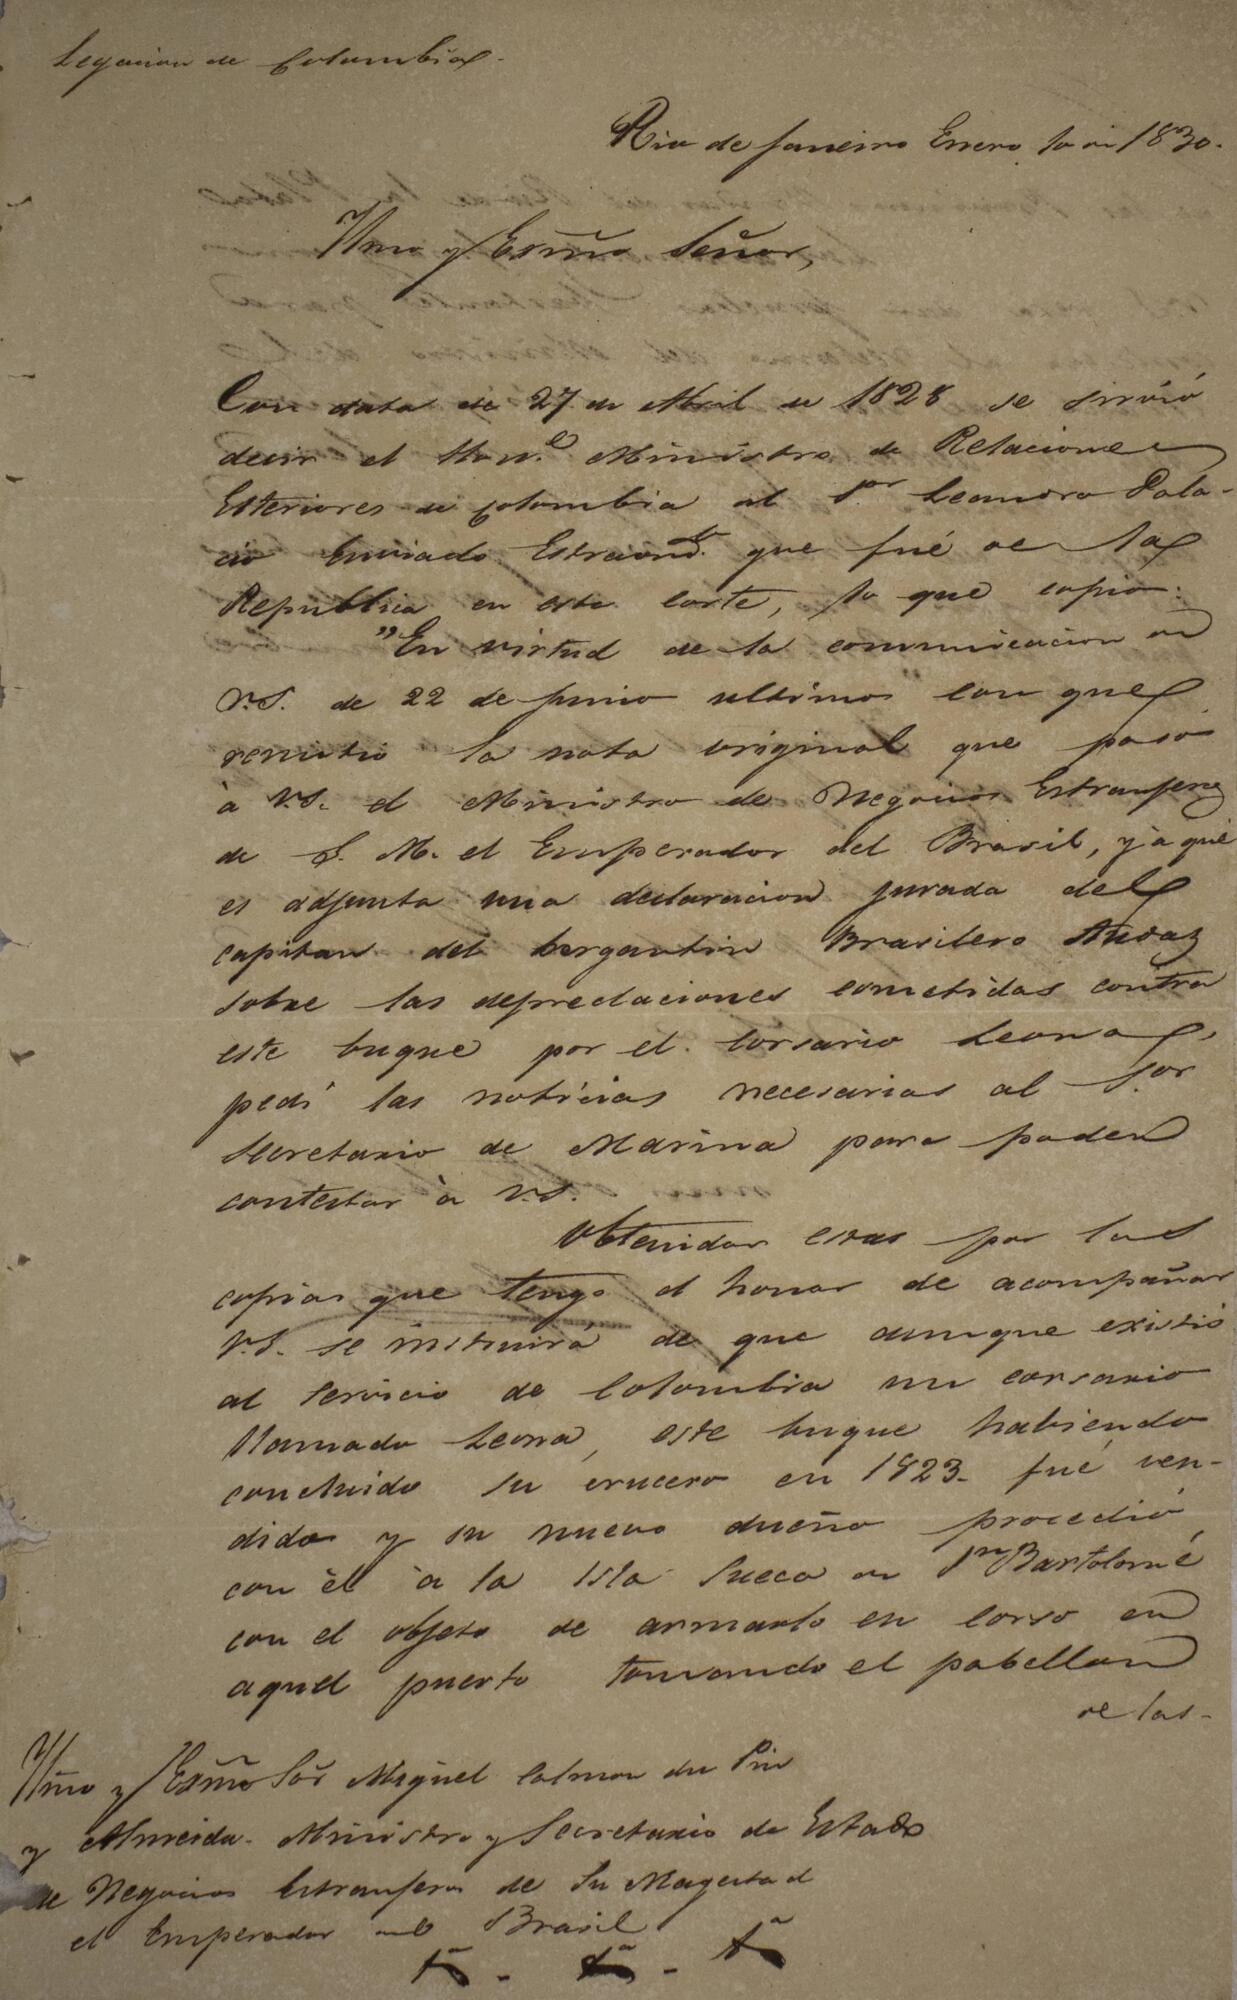 Legacion de Colombia.
Rio de Janeiro Enero 10 de 1830.
Ilmo y Exm̃o Señor,
Con data de 27 de Abril de 1828 se sirvió
decir el Hon.e Ministro de Relaciones
Esteriores de Colombia al S.or Leandro Pala-
cio Enviado Estraord.o que fué de la
Republica en esta corte, lo que copio:
"En virtud de la comunicacion de
V.S. de 22 de Junio ultimo con que
remitio la nota original que pasó
à V.S. el Ministro de Negocios Estranjeros
de S. M. el Emperador del Brasil, y à que
es adjunta una declaracion jurada del
capitan del bergantin Brasilero Audaz
sobre las depredaciones cometidas contra
este buque por el Corsario Leona,
pedi las noticias necesarias al S.or
Secretario de Marina para poder
contestar à V.S.
Obtenidas estas por las
copias que tengo el honor de acompañar
V.S. se instruirá de que aunque existió
al servicio de Colombia un corsario
llamado Leona, este buque habiendo
concluido su crucero en 1823. fué ven-
dido y su nuevo dueño procedió
con èl à la Isla Sueca de S.n Bartolomé
con el objeto de armarlo en Corso en
aquel puerto tomando el pabellon
de las-
Ilm̃o y Exm̃o Sõr Miguel Calmon du Pin
y Almeida. Ministro y Secretario de Estado
de Negocios Estranjeros de Su Magestad
el Emperador del Brasil